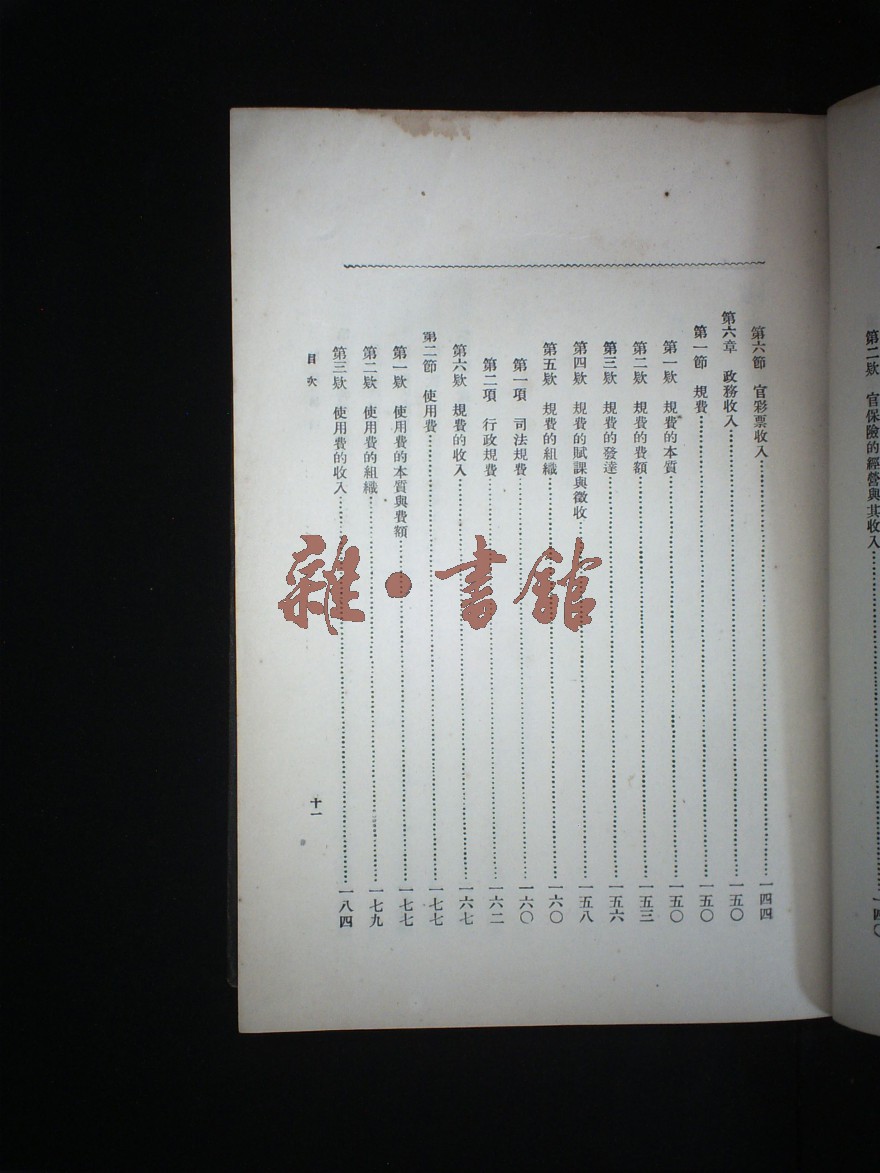 第二欵 官保險的經營與其收入……一四〇
第六節 官彩票收入……一四四
第六章 政務收入……一五〇
第一節 規費……一五〇
第一欵 規費的本質……一五〇
第二欵 規費的費額……一五三
第三欵 規費的發達……一五六
第四欵 規費的賦課與徵收……一五八
第五欵 規費的組織……一六〇
第一項 司法規費……一六〇
第二項 行政規費……一六二
第六欵 規費的收入……一六七
第二節 使用費……一七七
第一欵 使用費的本質與費額……一七七
第二欵 使用費的組織……一七九
第三欵 使用費的收入……一八四
目次
十一
雜·書館